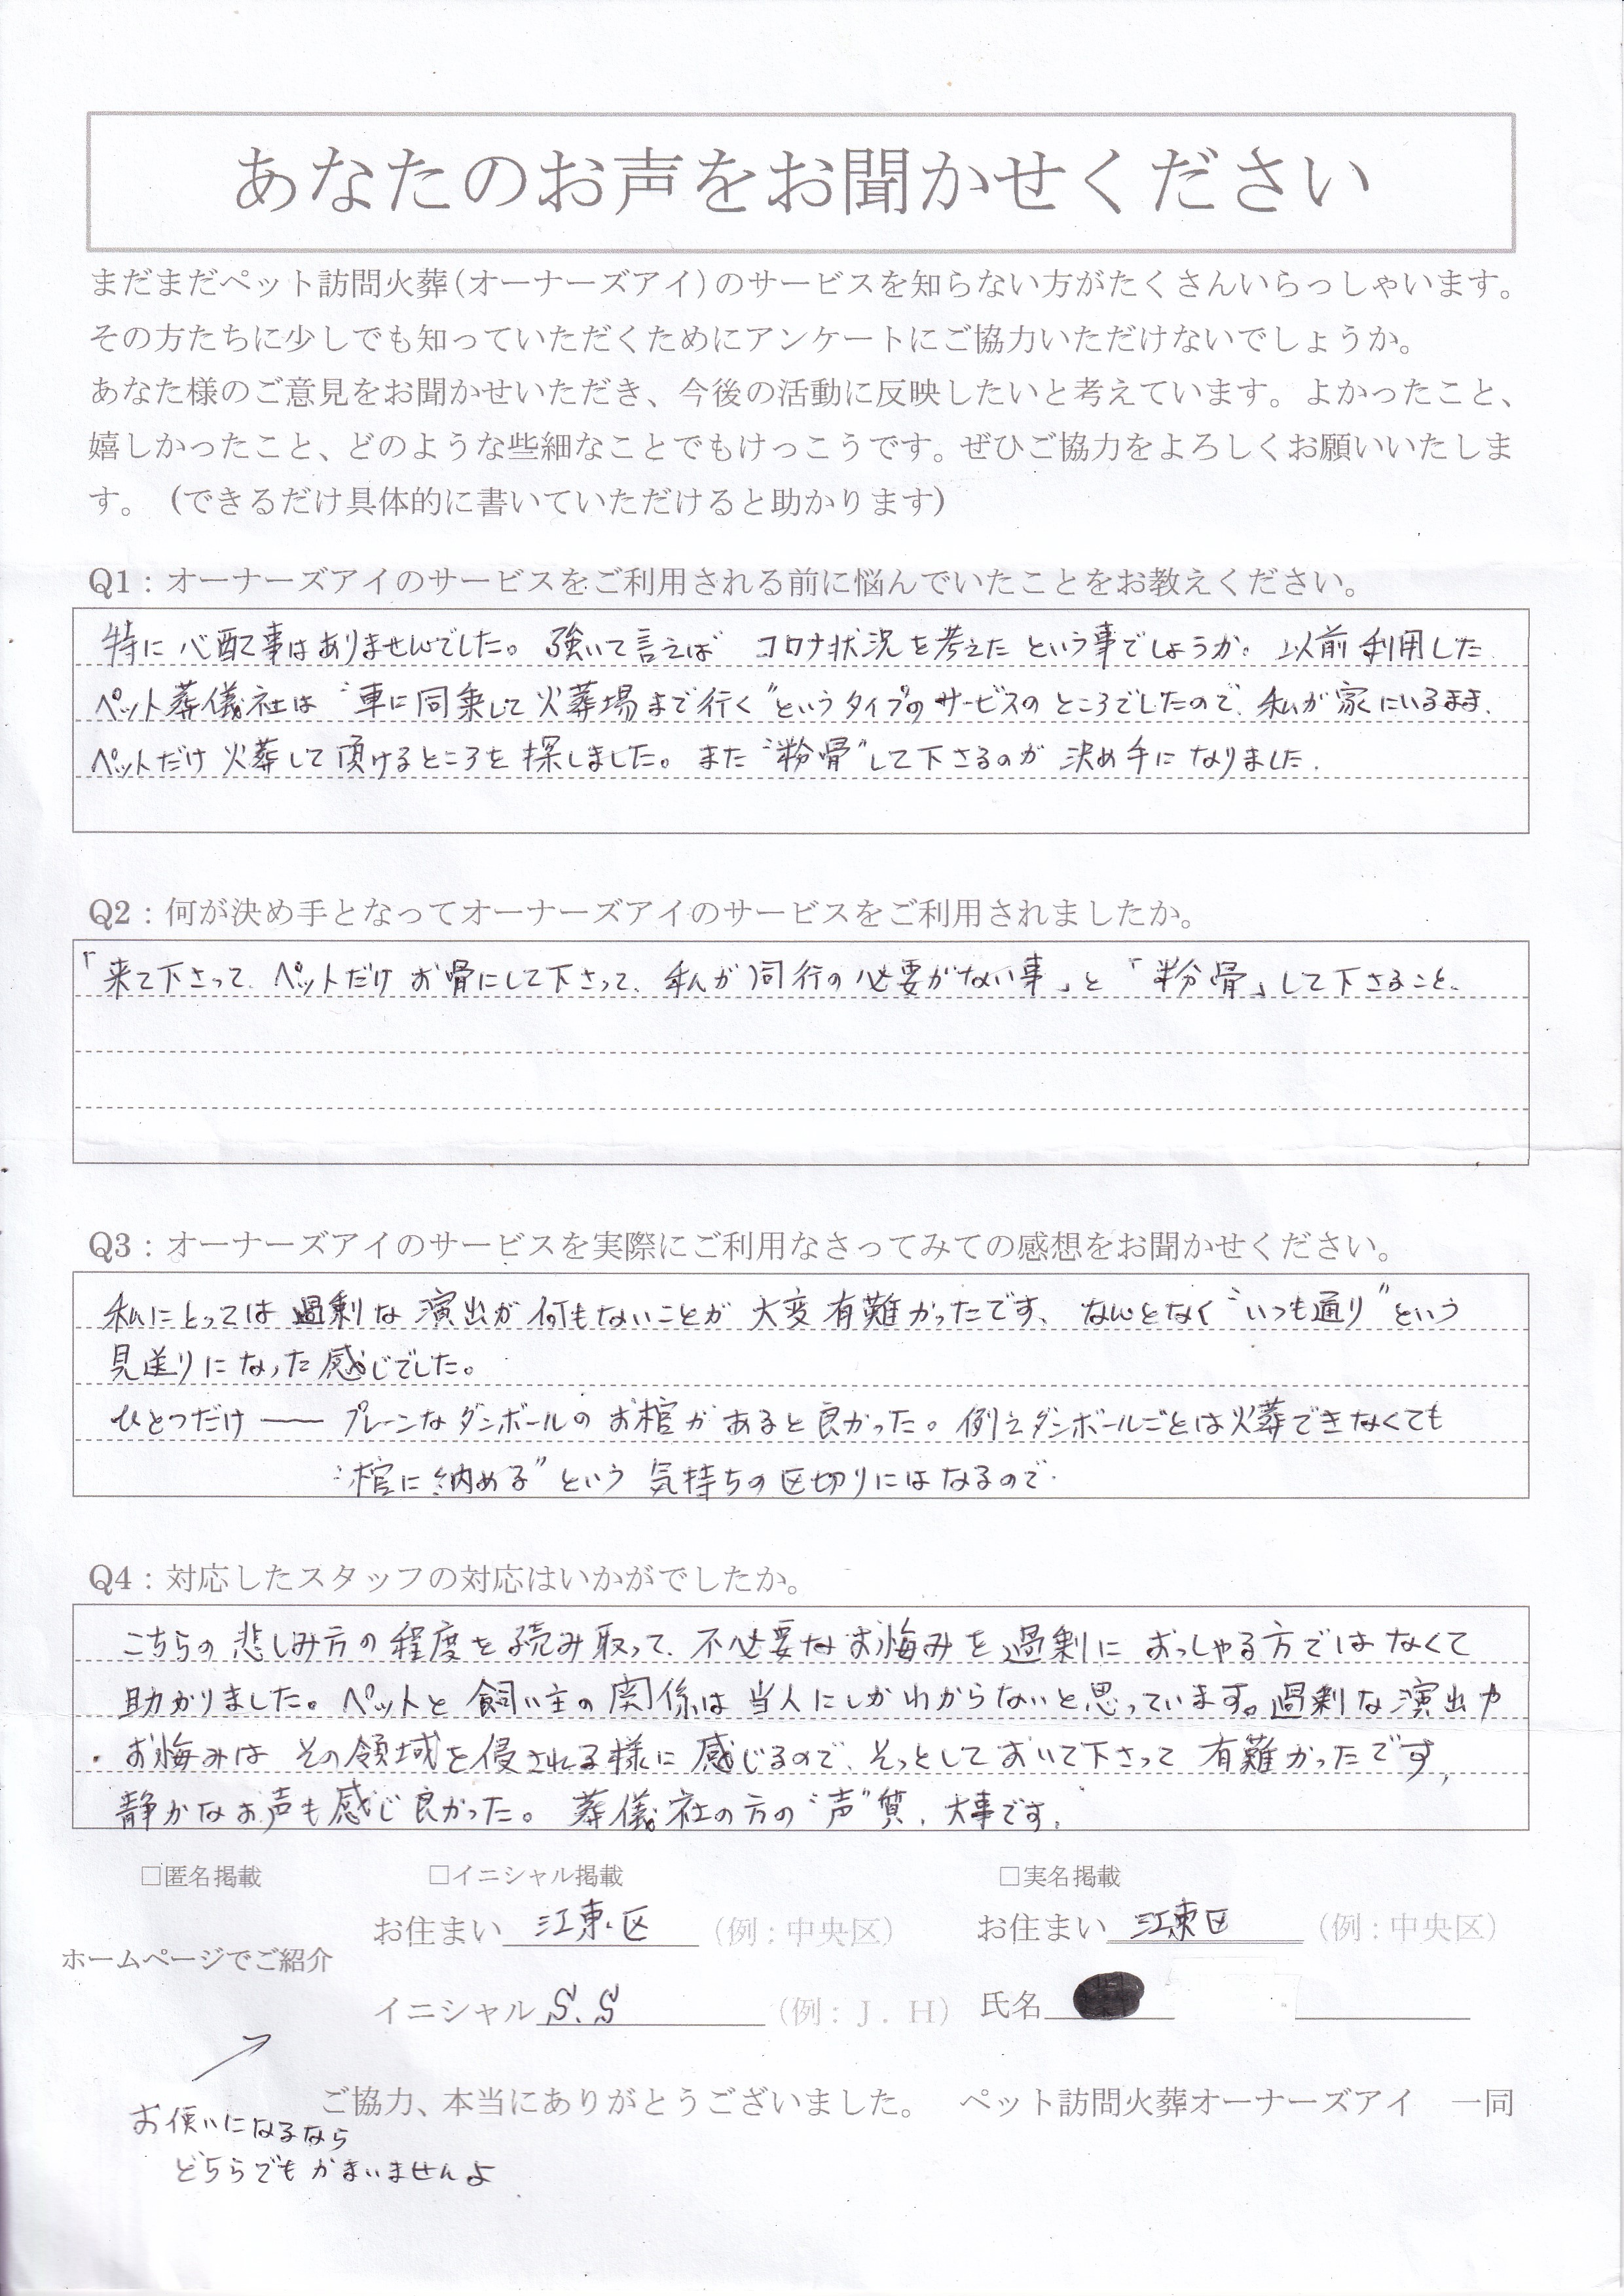 あなたのお声をお聞かせください
まだまだペット訪問火葬(オーナーズアイ)のサービスを知らない方がたくさんいらっしゃいます。
その方たちに少しでも知っていただくためにアンケートにご協力いただけないでしょうか。
あなた様のご意見をお聞かせいただき、今後の活動に反映したいと考えています。よかったこと、
嬉しかったこと、どのような些細なことでもけっこうです。ぜひご協力をよろしくお願いいたしま
す。(できるだけ具体的に書いていただけると助かります)
Q1：オーナーズアイのサービスをご利用される前に悩んでいたことをお教えください。
特に心配事はありませんでした。強いて言えば コロナ状況を考えた という事でしょうか。以前利用した
ペット葬儀社は“車に同乗して火葬場まで行く”というタイプのサービスのところでしたので、私が家にいるまま、
ペットだけ火葬して頂けるところを探しました。また“粉骨”して下さるのが 決め手になりました。
Q2：何が決め手となってオーナーズアイのサービスをご利用されましたか。
「来て下さって、ペットだけお骨にして下さって、私が同行の必要がない事」と「粉骨」して下さること、
Q3：オーナーズアイのサービスを実際にご利用なさってみての感想をお聞かせください。
私にとっては過剰な演出が何もないことが大変有難かったです、なんとなく“いつも通り”という
見送りになった感じでした。
ひとつだけ ―― プレーンなダンボールのお棺があると良かった。例えダンボールごとは火葬できなくても
“棺に納める”という気持ちの区切りにはなるので。
Q4：対応したスタッフの対応はいかがでしたか。
こちらの悲しみ方の程度を読み取って、不必要なお悔みを過剰におっしゃる方ではなくて
助かりました。ペットと飼い主の関係は当人にしかわからないと思っています。過剰な演出や
お悔みはその領域を侵される様に感じるので、そっとしておいて下さって有難かったです、
静かなお声も感じ良かった。葬儀社の方の“声”質、大事です。
□匿名掲載 □イニシャル掲載 □実名掲載
お住まい 江東区 (例：中央区) お住まい 江東区 (例：中央区)
ホームページでご紹介
イニシャル S.S (例：J．H) 氏名
ご協力、本当にありがとうございました。 ペット訪問火葬オーナーズアイ 一同
お使いになるなら
どちらでもかまいませんよ